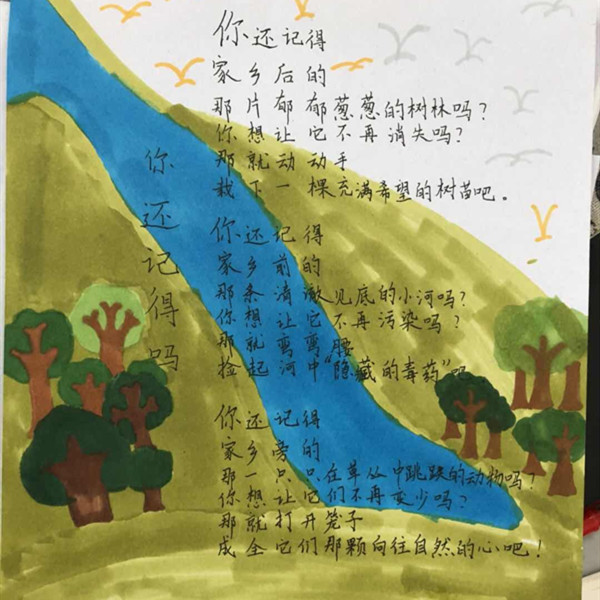 你还记得吗
你还记得
家乡后的
那片郁郁葱葱的树林吗？
你想让它不再消失吗？
那就动动手
栽下一棵充满希望的树苗吧。
你还记得
家乡前的
那条清澈见底的小河吗？
你想让它不再污染吗？
那就弯弯腰
捡起河中“隐藏的毒药”吧
你还记得
家乡旁的
那一只只在草丛中跳跃的动物吗？
你想让它们不再变少吗？
那就打开笼子
成全它们那颗向往自然的心吧！